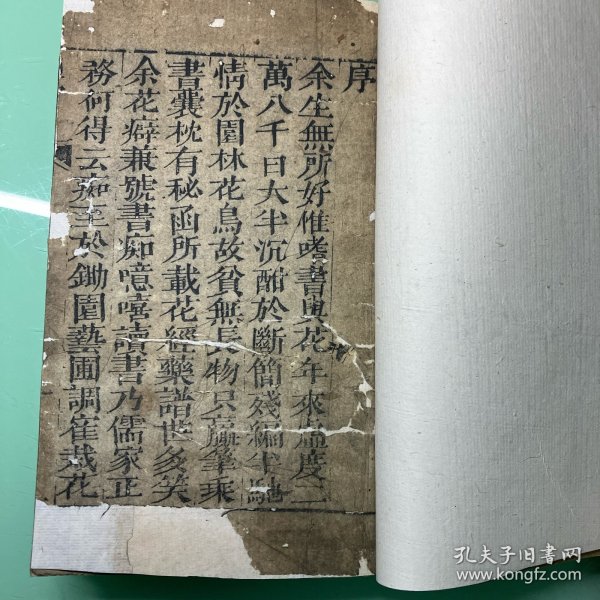 序
余生無所好惟嗜書與花年來虛度二
萬八千日大半沉酣於斷簡殘編半馳
情於園林花鳥故貧無長物只贏筆乘
書囊枕有秘函所載花經藥譜世多笑
余花癖兼號書痴噫嘻讀書乃儒家正
務何得云痴至於鋤園藝圃調崔栽花
孔夫子旧书网
www.kongfz.com